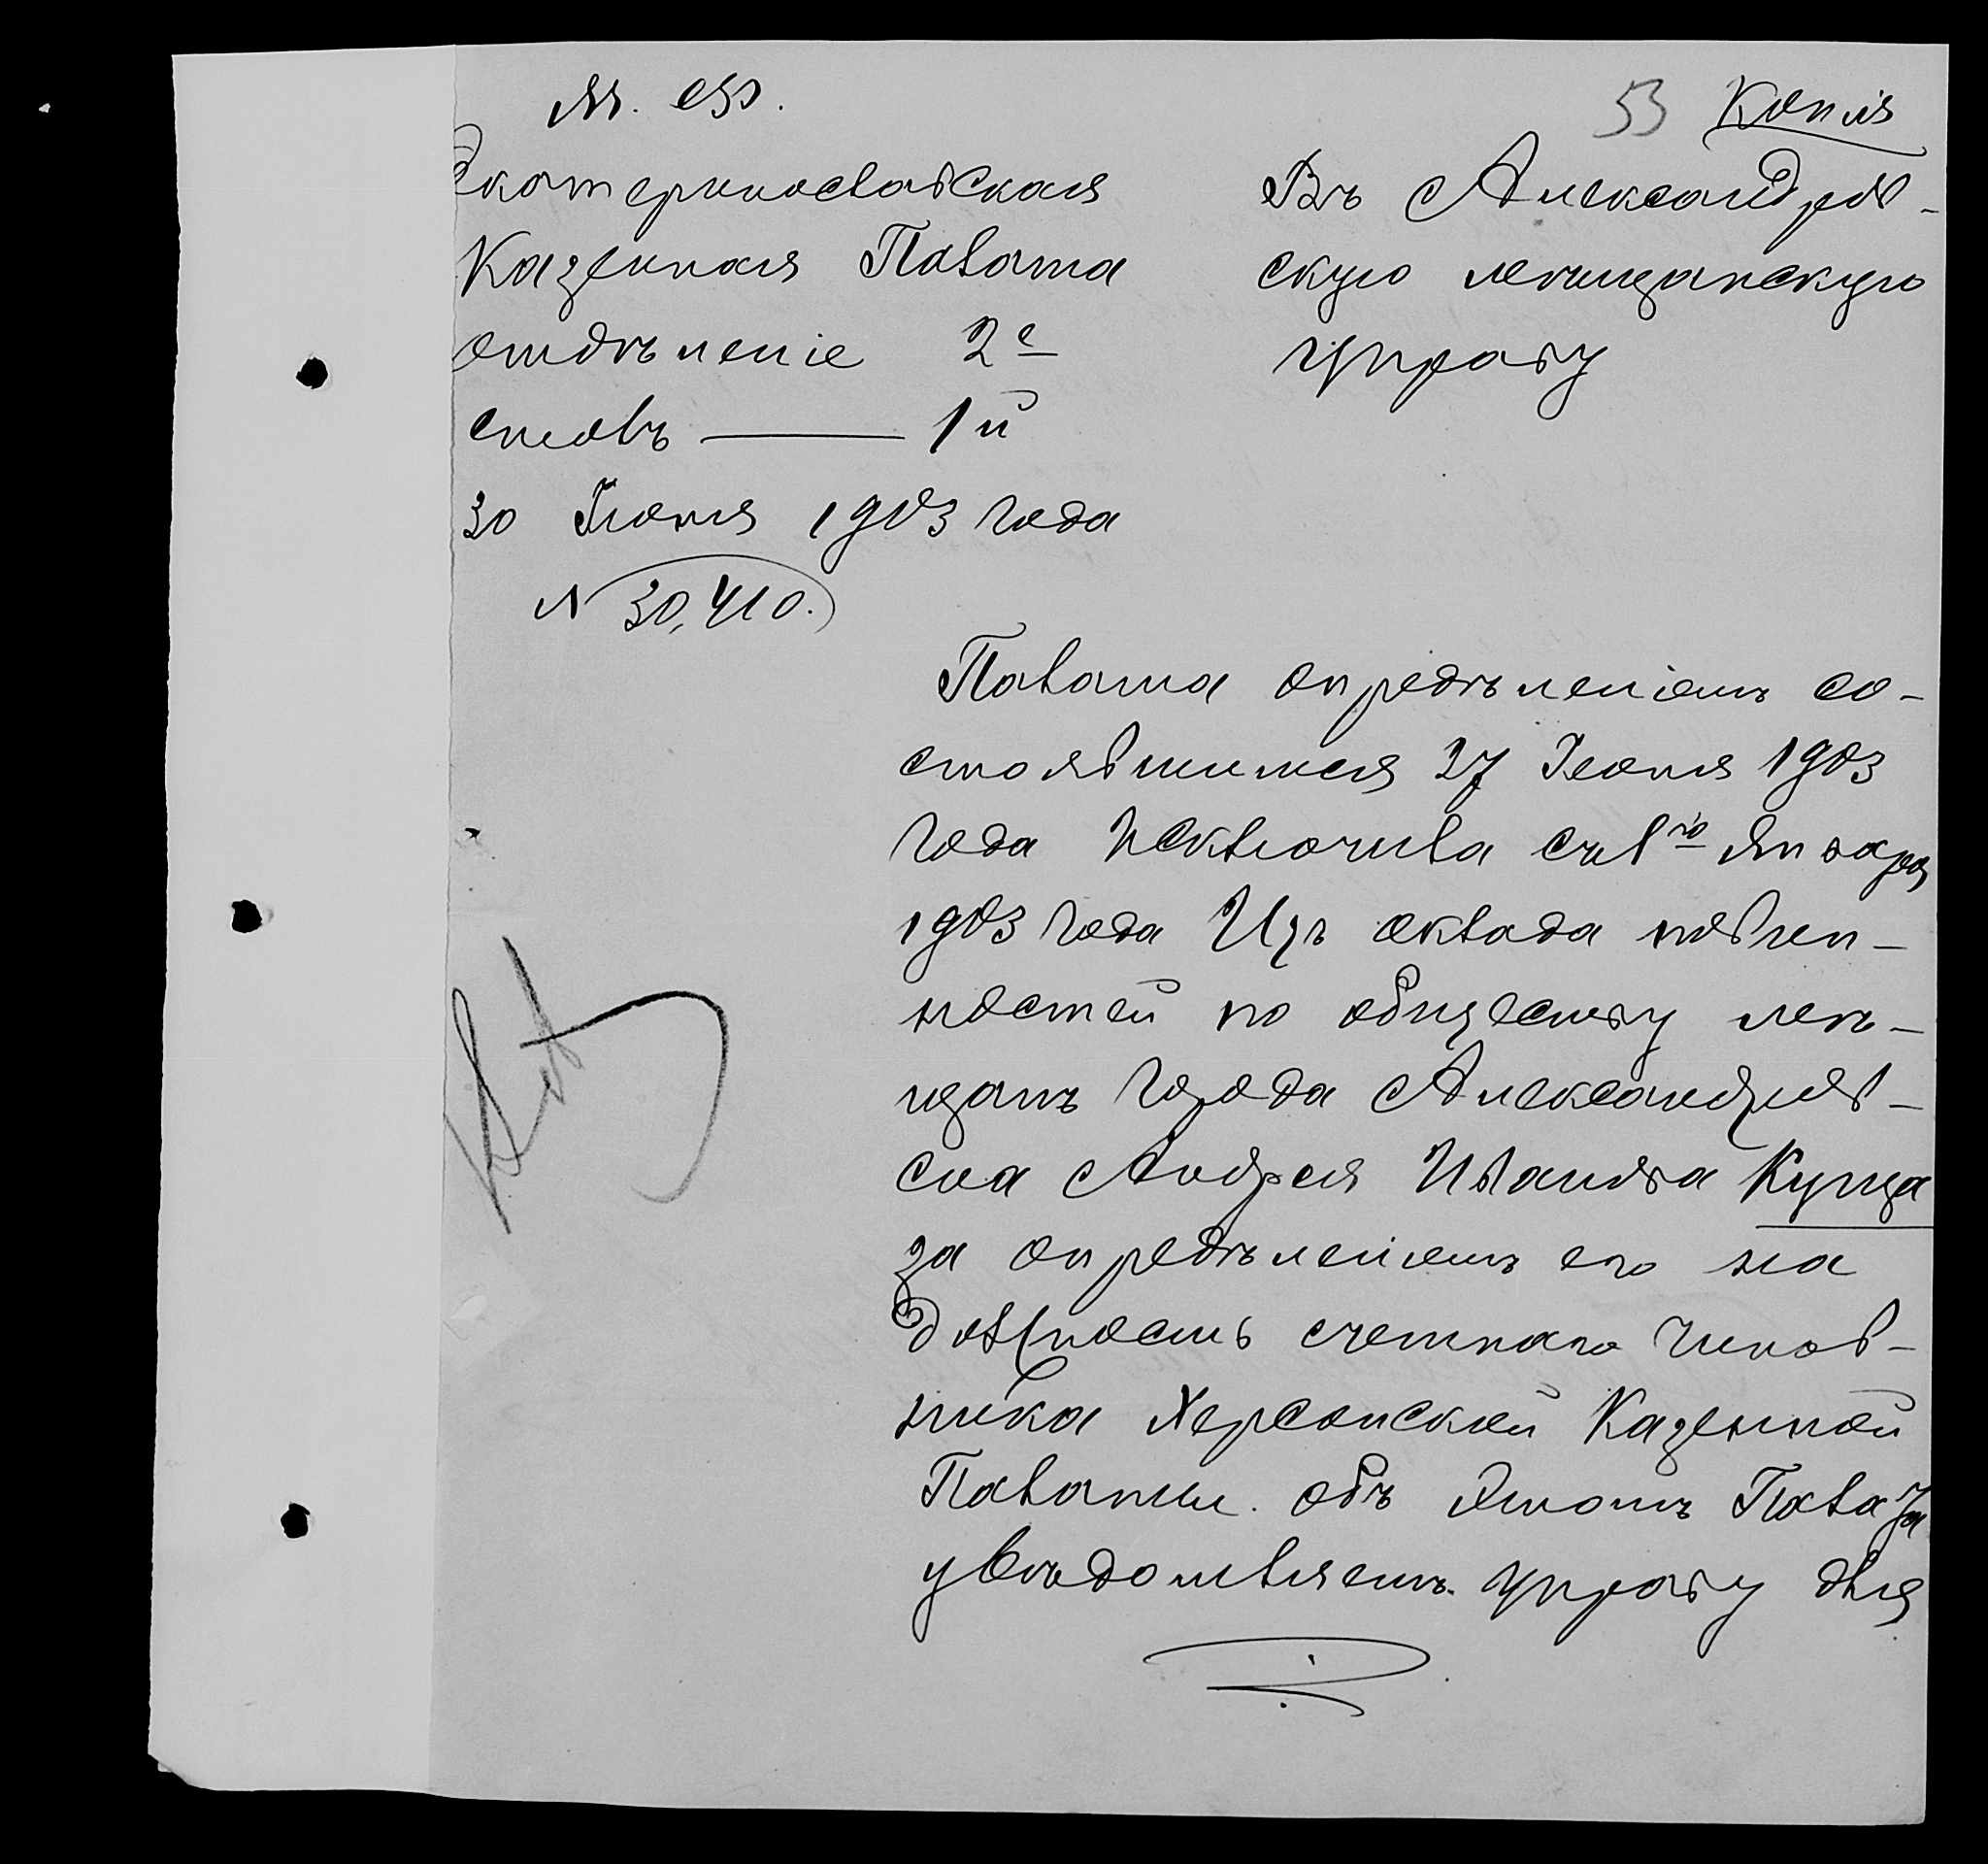 М. Ф.
53 Копія
Екатеринославская
Казенная Палата
отдѣленіе 2е
столъ — 1й
30 Іюня 1903 года
N 30,410.
Въ Александров-
скую мещанскую
управу
Палата опредѣленіемъ со-
стоявшимся 27 Іюня 1903
года исключила съ 1го Января
1903 года Изъ оклада повин-
ностей по обществу мѣ-
щанъ города Александров-
ска Андрея Иванова Купца
за опредѣленіемъ его на
должность счетнаго чинов-
ника Херсонской Казенной
Палаты. объ этомъ Палата
увѣдомляетъ управу для